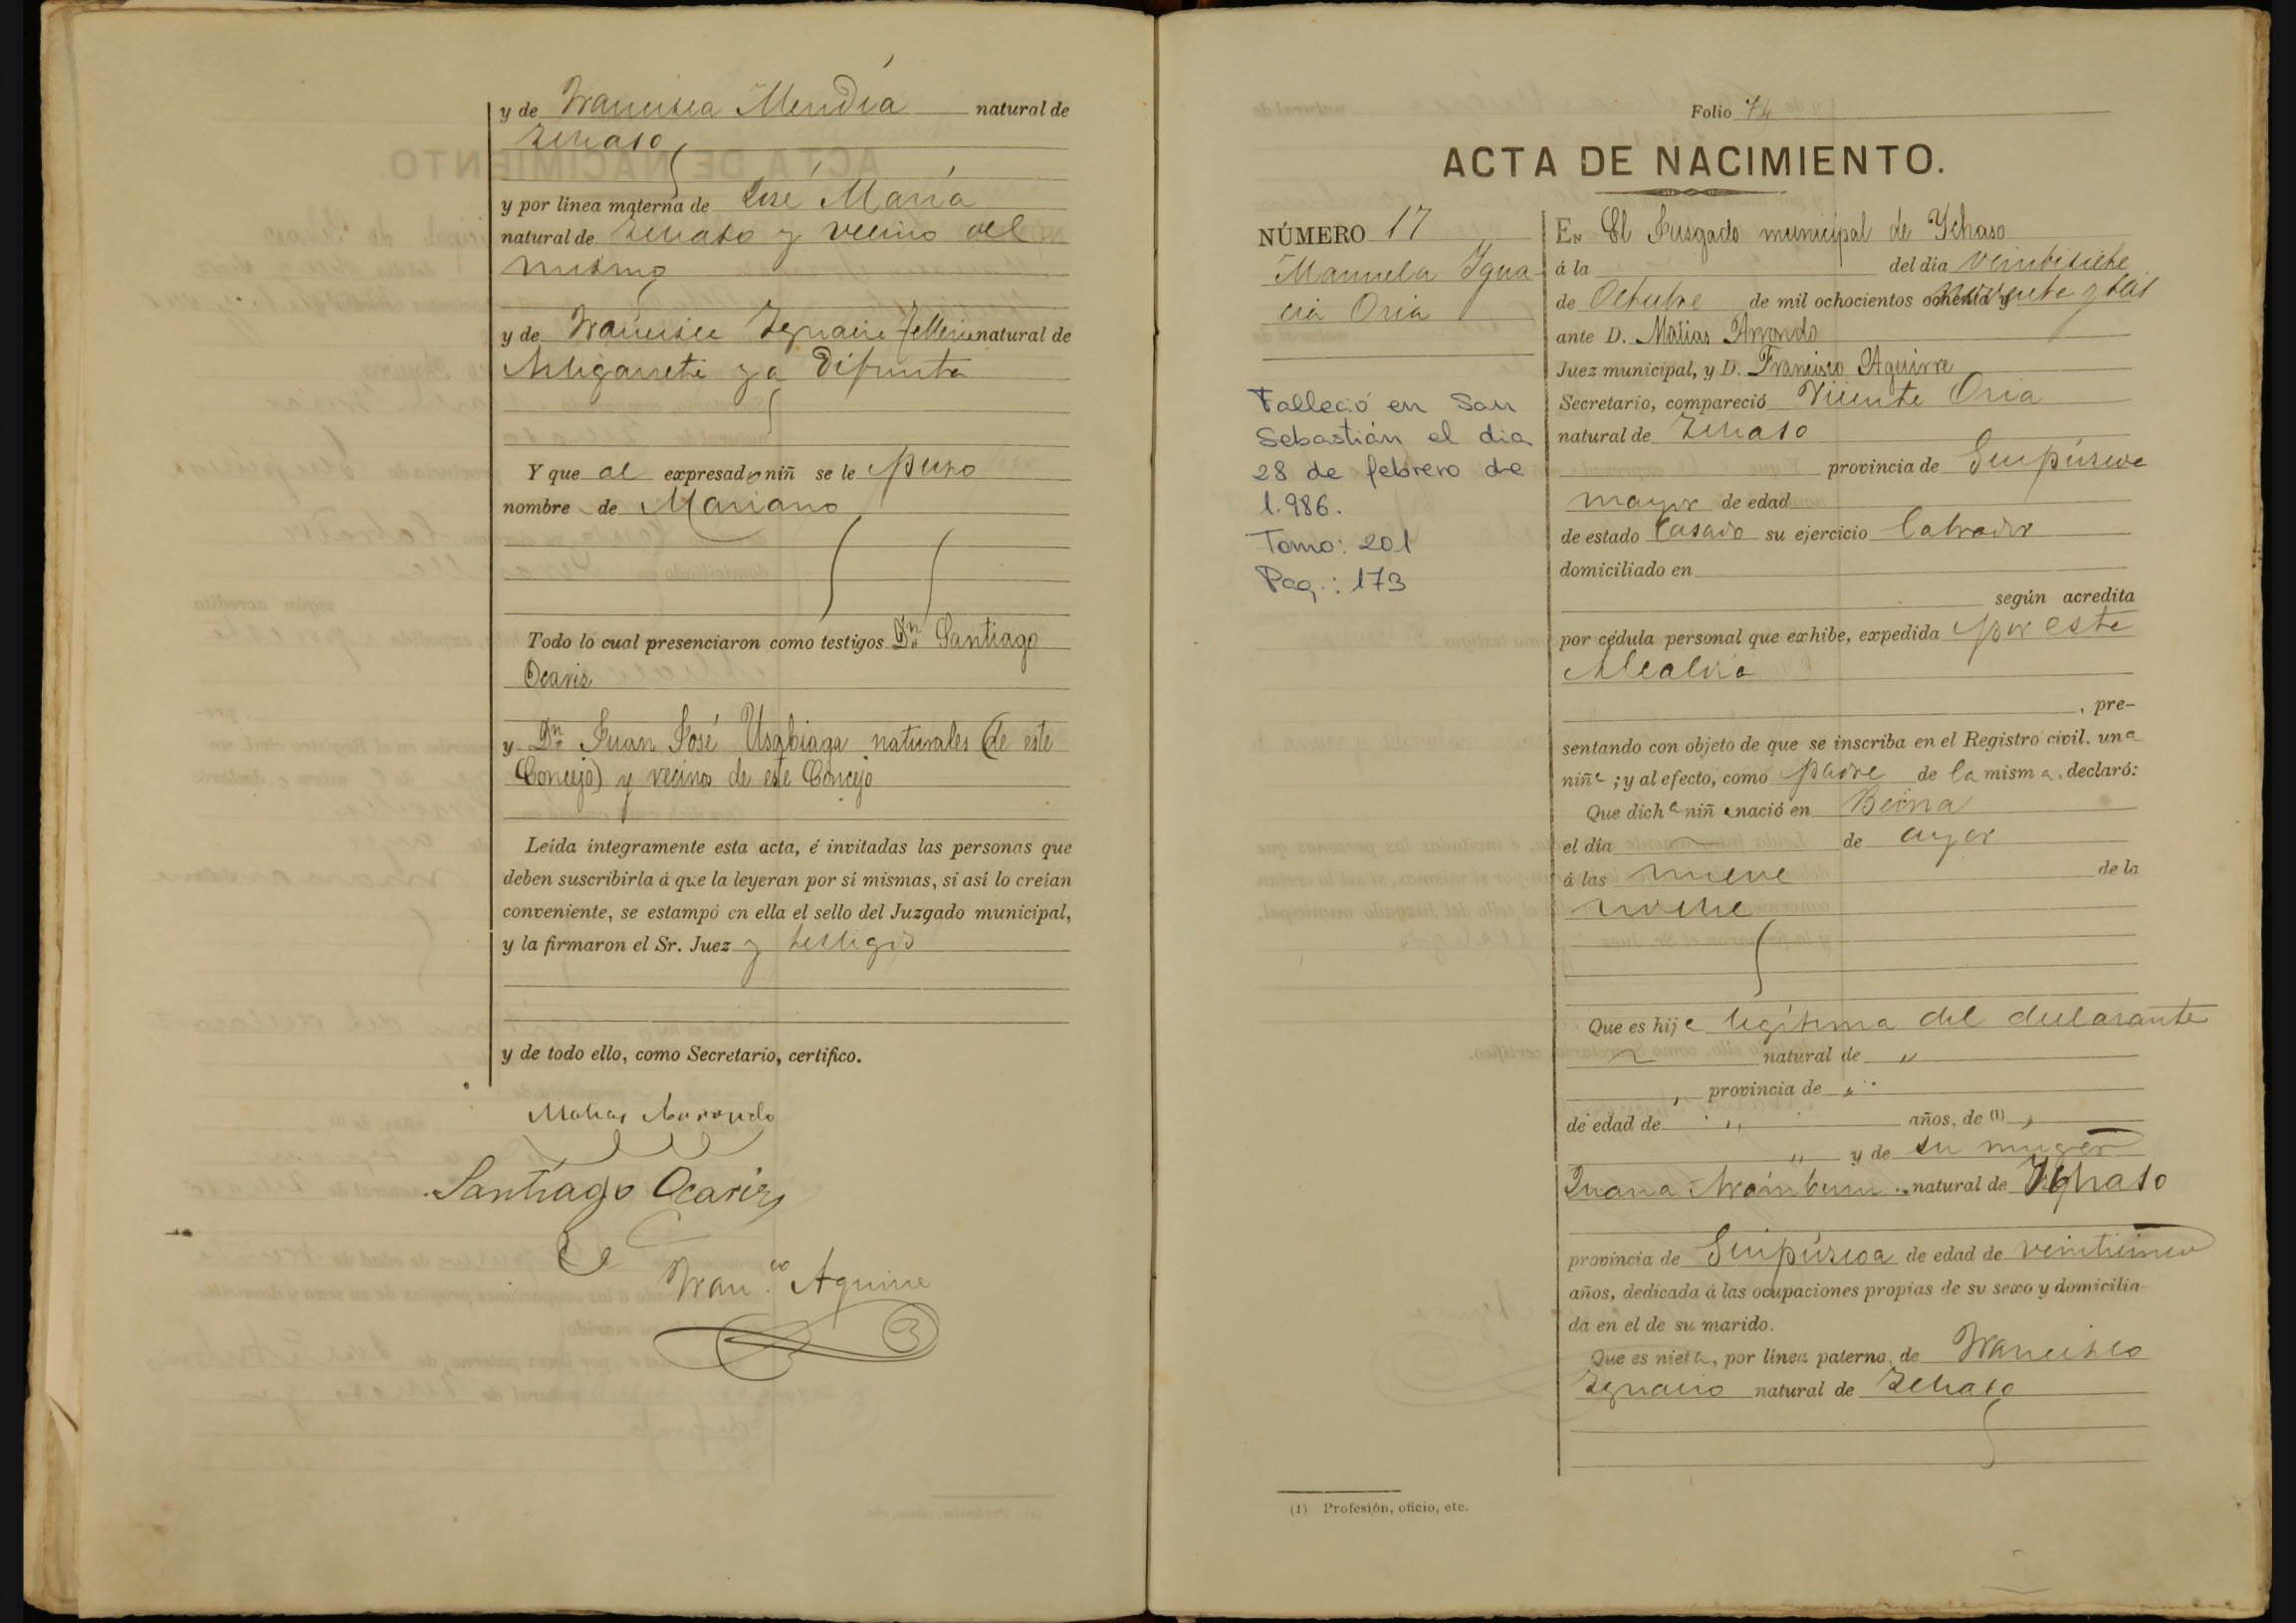 y de Francisca Mendia natural de
Ichaso
y por línea materna de José María
natural de Ichaso y vecino del
mismo
y de Francisca Ignacia Telleria natural de
Astigarreta ya difunta
Y que al expresado niñ se le puso
nombre de Mariano
Todo lo cual presenciaron como testigos Dn Santiago
Ocariz
y Dn Juan José Usabiaga naturales (de este
Concejo) y vecinos de este Concejo
Leída íntegramente esta acta, é invitadas las personas que
deben suscribirla á que la leyeran por sí mismas, si así lo creían
conveniente, se estampó en ella el sello del Juzgado municipal,
y la firmaron el Sr. Juez y testigos
y de todo ello, como Secretario, certifico.
Matias Arrondo
Santiago Ocariz
Franco Aguirre
Folio 74
ACTA DE NACIMIENTO.
NÚMERO 17
Manuela Igna
cia Oria
Falleció en San
Sebastián el dia
28 de febrero de
1.986.
Tomo: 201
Pag.: 173
En El Jusgado municipal de Ychaso
á la del día veintisiete
de Octubre de mil ochocientos ochenta y noventa y seis
ante D. Matias Arrondo
Juez municipal, y D. Francisco Aguirre
Secretario, compareció Vicente Oria
natural de Ichaso
provincia de Guipúscoa
mayor de edad
de estado casado su ejercicio labrador
domiciliado en
según acredita
por cédula personal que exhibe, expedida por esta
Alcaldía
, pre-
sentando con objeto de que se inscriba en el Registro civil. una
niña; y al efecto, como padre de la misma, declaró:
Que dicha niña nació en Beina
el día de ayer
á las nueve de la
noche
Que es hija legítima del declarante
natural de "
" provincia de "
de edad de " años, de (1) "
" y de su muger
Juana Aramburu natural de Ichaso
provincia de Guipúscoa de edad de veinticinco
años, dedicada á las ocupaciones propias de su sexo y domicilia-
da en el de su marido.
Que es nieta, por línea paterna, de Francisco
Ignacio natural de Ichaso
(1) Profesión, oficio, etc.